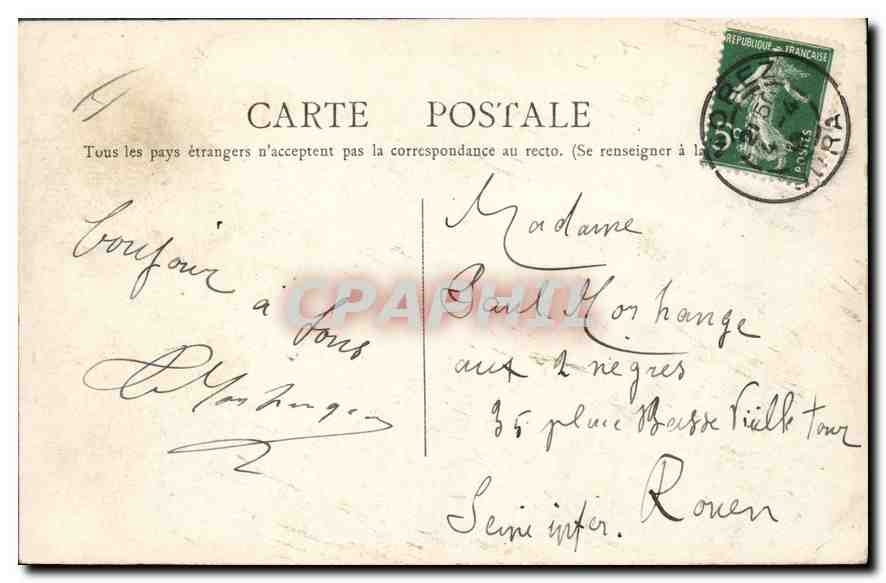 CARTE POSTALE
Tous les pays étrangers n'acceptent pas la correspondance au recto. (Se renseigner à la
REPUBLIQUE FRANÇAISE
5c
POSTES
MOREZ
JURA
bonjour
à
tous
Morhange
Madame
Paul Morhange
aux 2 nègres
35 place Basse Vieille Tour
Rouen
Seine infer.
CPAPHIL